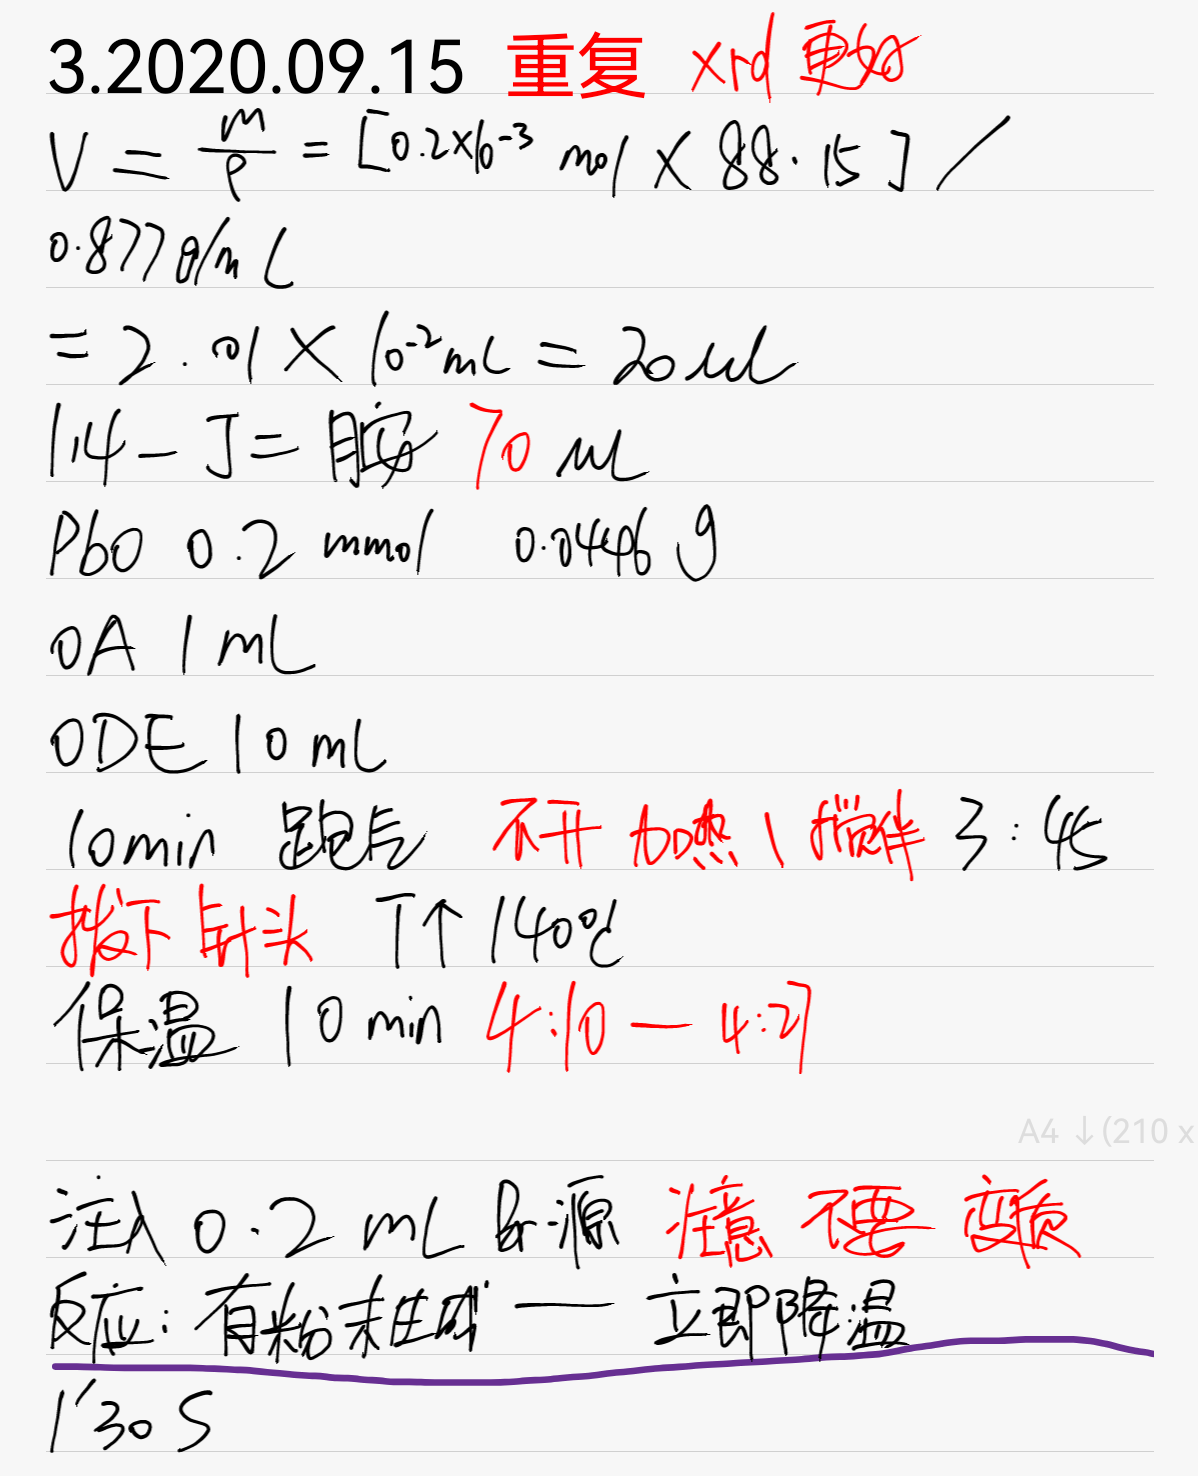 3.2020.09.15 重复 xrd 更好
V = m/ρ = [0.2×10⁻³ mol × 88.15] /
0.877 g/mL
= 2.01 × 10⁻² mL = 20 uL
1,4-丁二胺 70 uL
PbO 0.2 mmol 0.0446 g
OA 1 mL
ODE 10 mL
10min 跑气 不开加热、搅拌 3:45
拔下针头 T↑ 140℃
保温 10 min 4:10 — 4:27
A4 ↓(210 x
注入 0.2 mL Br-源 注意 不要 变质
反应: 有粉末生成 — 立即降温
1'30 S